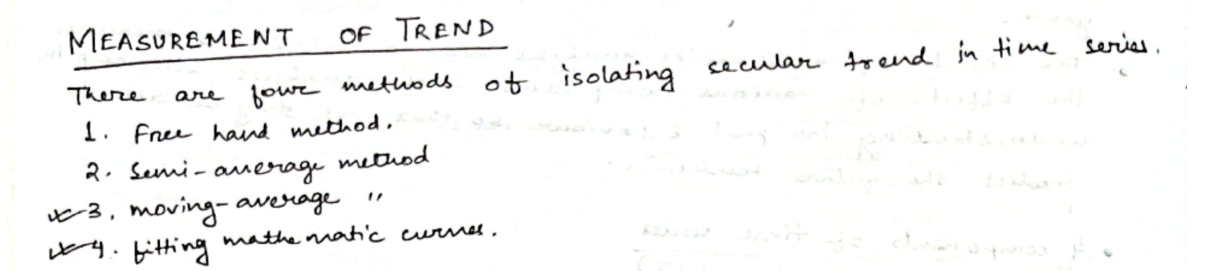 MEASUREMENT OF TREND
There are four methods of isolating secular trend in time series.
1. Free hand method.
2. Semi-average method
*3. moving-average "
*4. fitting mathematic curves.